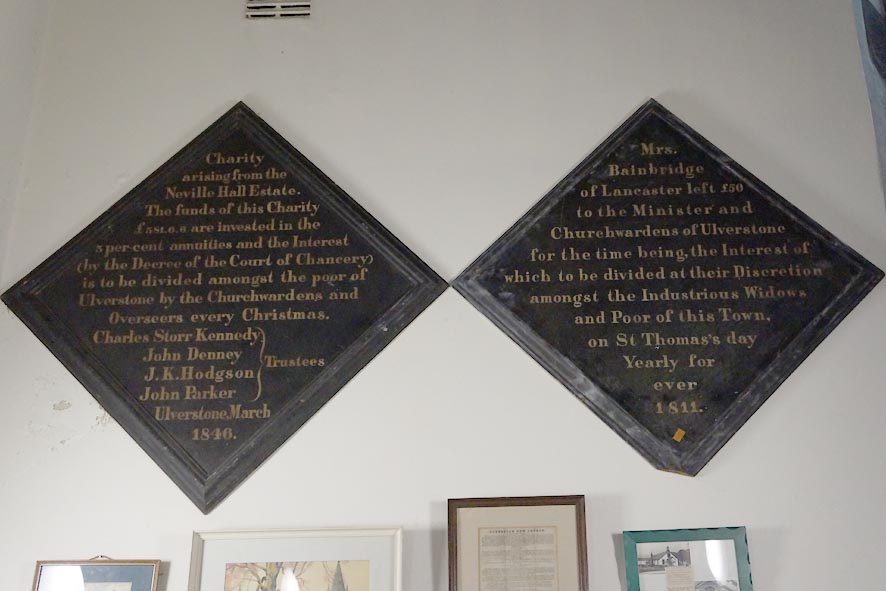 Charity
arising from the
Neville Hall Estate.
The funds of this Charity
£351.6.6 are invested in the
3 per-cent annuities and the Interest
(by the Decree of the Court of Chancery)
is to be divided amongst the poor of
Ulverstone by the Churchwardens and
Overseers every Christmas.
Charles Storr Kennedy
John Denney
J.K. Hodgson
John Parker
Trustees
Ulverstone, March
1846.
Mrs.
Bainbridge
of Lancaster left £50
to the Minister and
Churchwardens of Ulverstone
for the time being, the Interest of
which to be divided at their Discretion
amongst the Industrious Widows
and Poor of this Town,
on St Thomas's day
Yearly for
ever
1811.